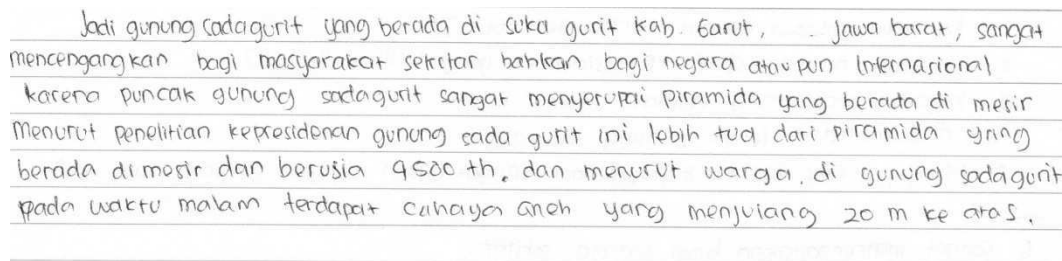 Jadi gunung sadagurit yang berada di suka gurit kab. Garut, . Jawa barat, sangat
mencengangkan bagi masyarakat sekitar bahkan bagi negara atau pun Internasional
karena puncak gunung sadagurit sangat menyerupai piramida yang berada di mesir
Menurut penelitian kepresidenan gunung sada gurit ini lebih tua dari piramida yang
berada di mesir dan berusia 9500 th. dan menurut warga. di gunung sadagurit
pada waktu malam terdapat cahaya aneh yang menjulang 20 m ke atas.